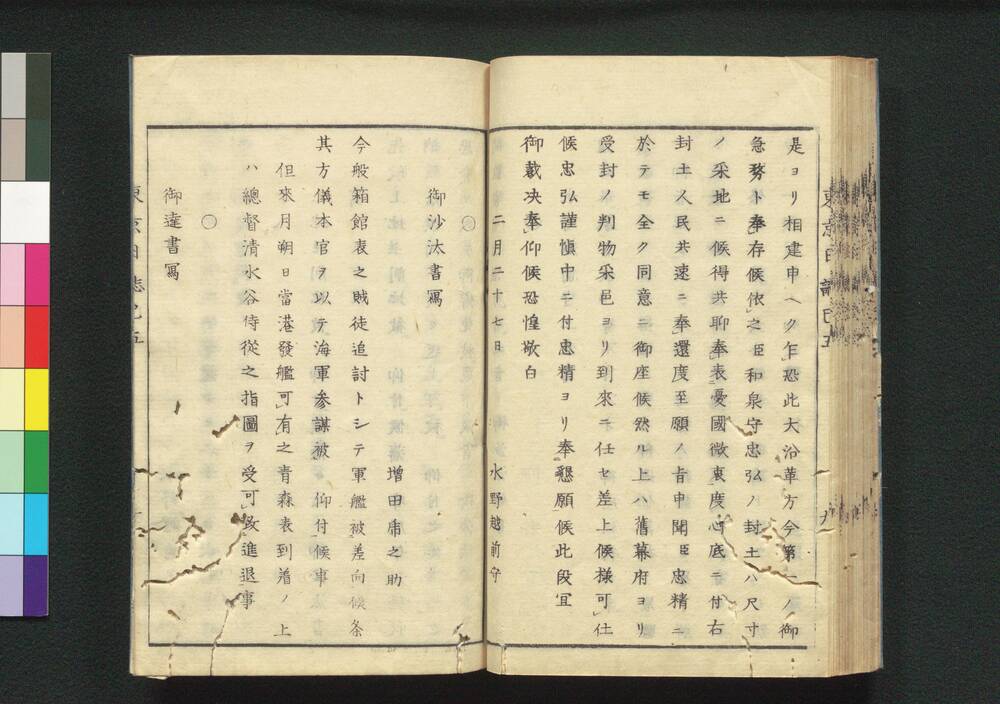 是ヨリ相建申ヘク乍恐此大沿革方今第一ノ御
急務ト奉存候依之臣和泉守忠弘ノ封土ハ尺寸
ノ采地ニ候得共聊奉表憂國微衷度心底ニ付右
封土人民共速ニ奉還度至願ノ旨申聞臣忠精ニ
於テモ全ク同意ニ御座候然ル上ハ舊幕府ヨリ
受封ノ判物采邑ヨリ到來ニ任セ差上候様可仕
候忠弘謹愼中ニ付忠精ヨリ奉懇願候此段宜
御裁决奉仰候恐惶敬白
二月二十七日 水野越前守
○
御沙汰書寫
増田帯之助
今般箱館表之賊徒追討トシテ軍艦被差向候条
其方儀本官ヲ以テ海軍参謀被 仰付候事
但來月朔日當港發艦可有之青森表到着ノ上
ハ總督清水谷侍從之指圖ヲ受可致進退事
○
御達書寫
東京日誌己五
東京日誌己五 九